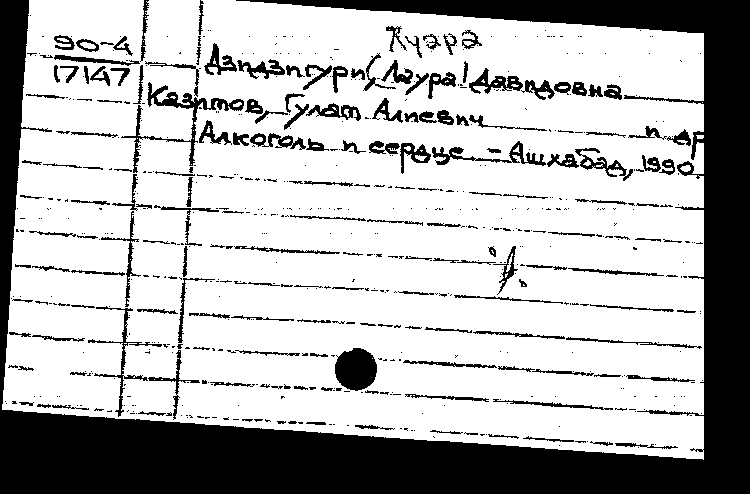 Куара
90-4
17147
Дзидзигури, Лаура Давидовна
Казимов, Гулам Алиевич и др
Алкоголь и сердце. - Ашхабад, 1990.